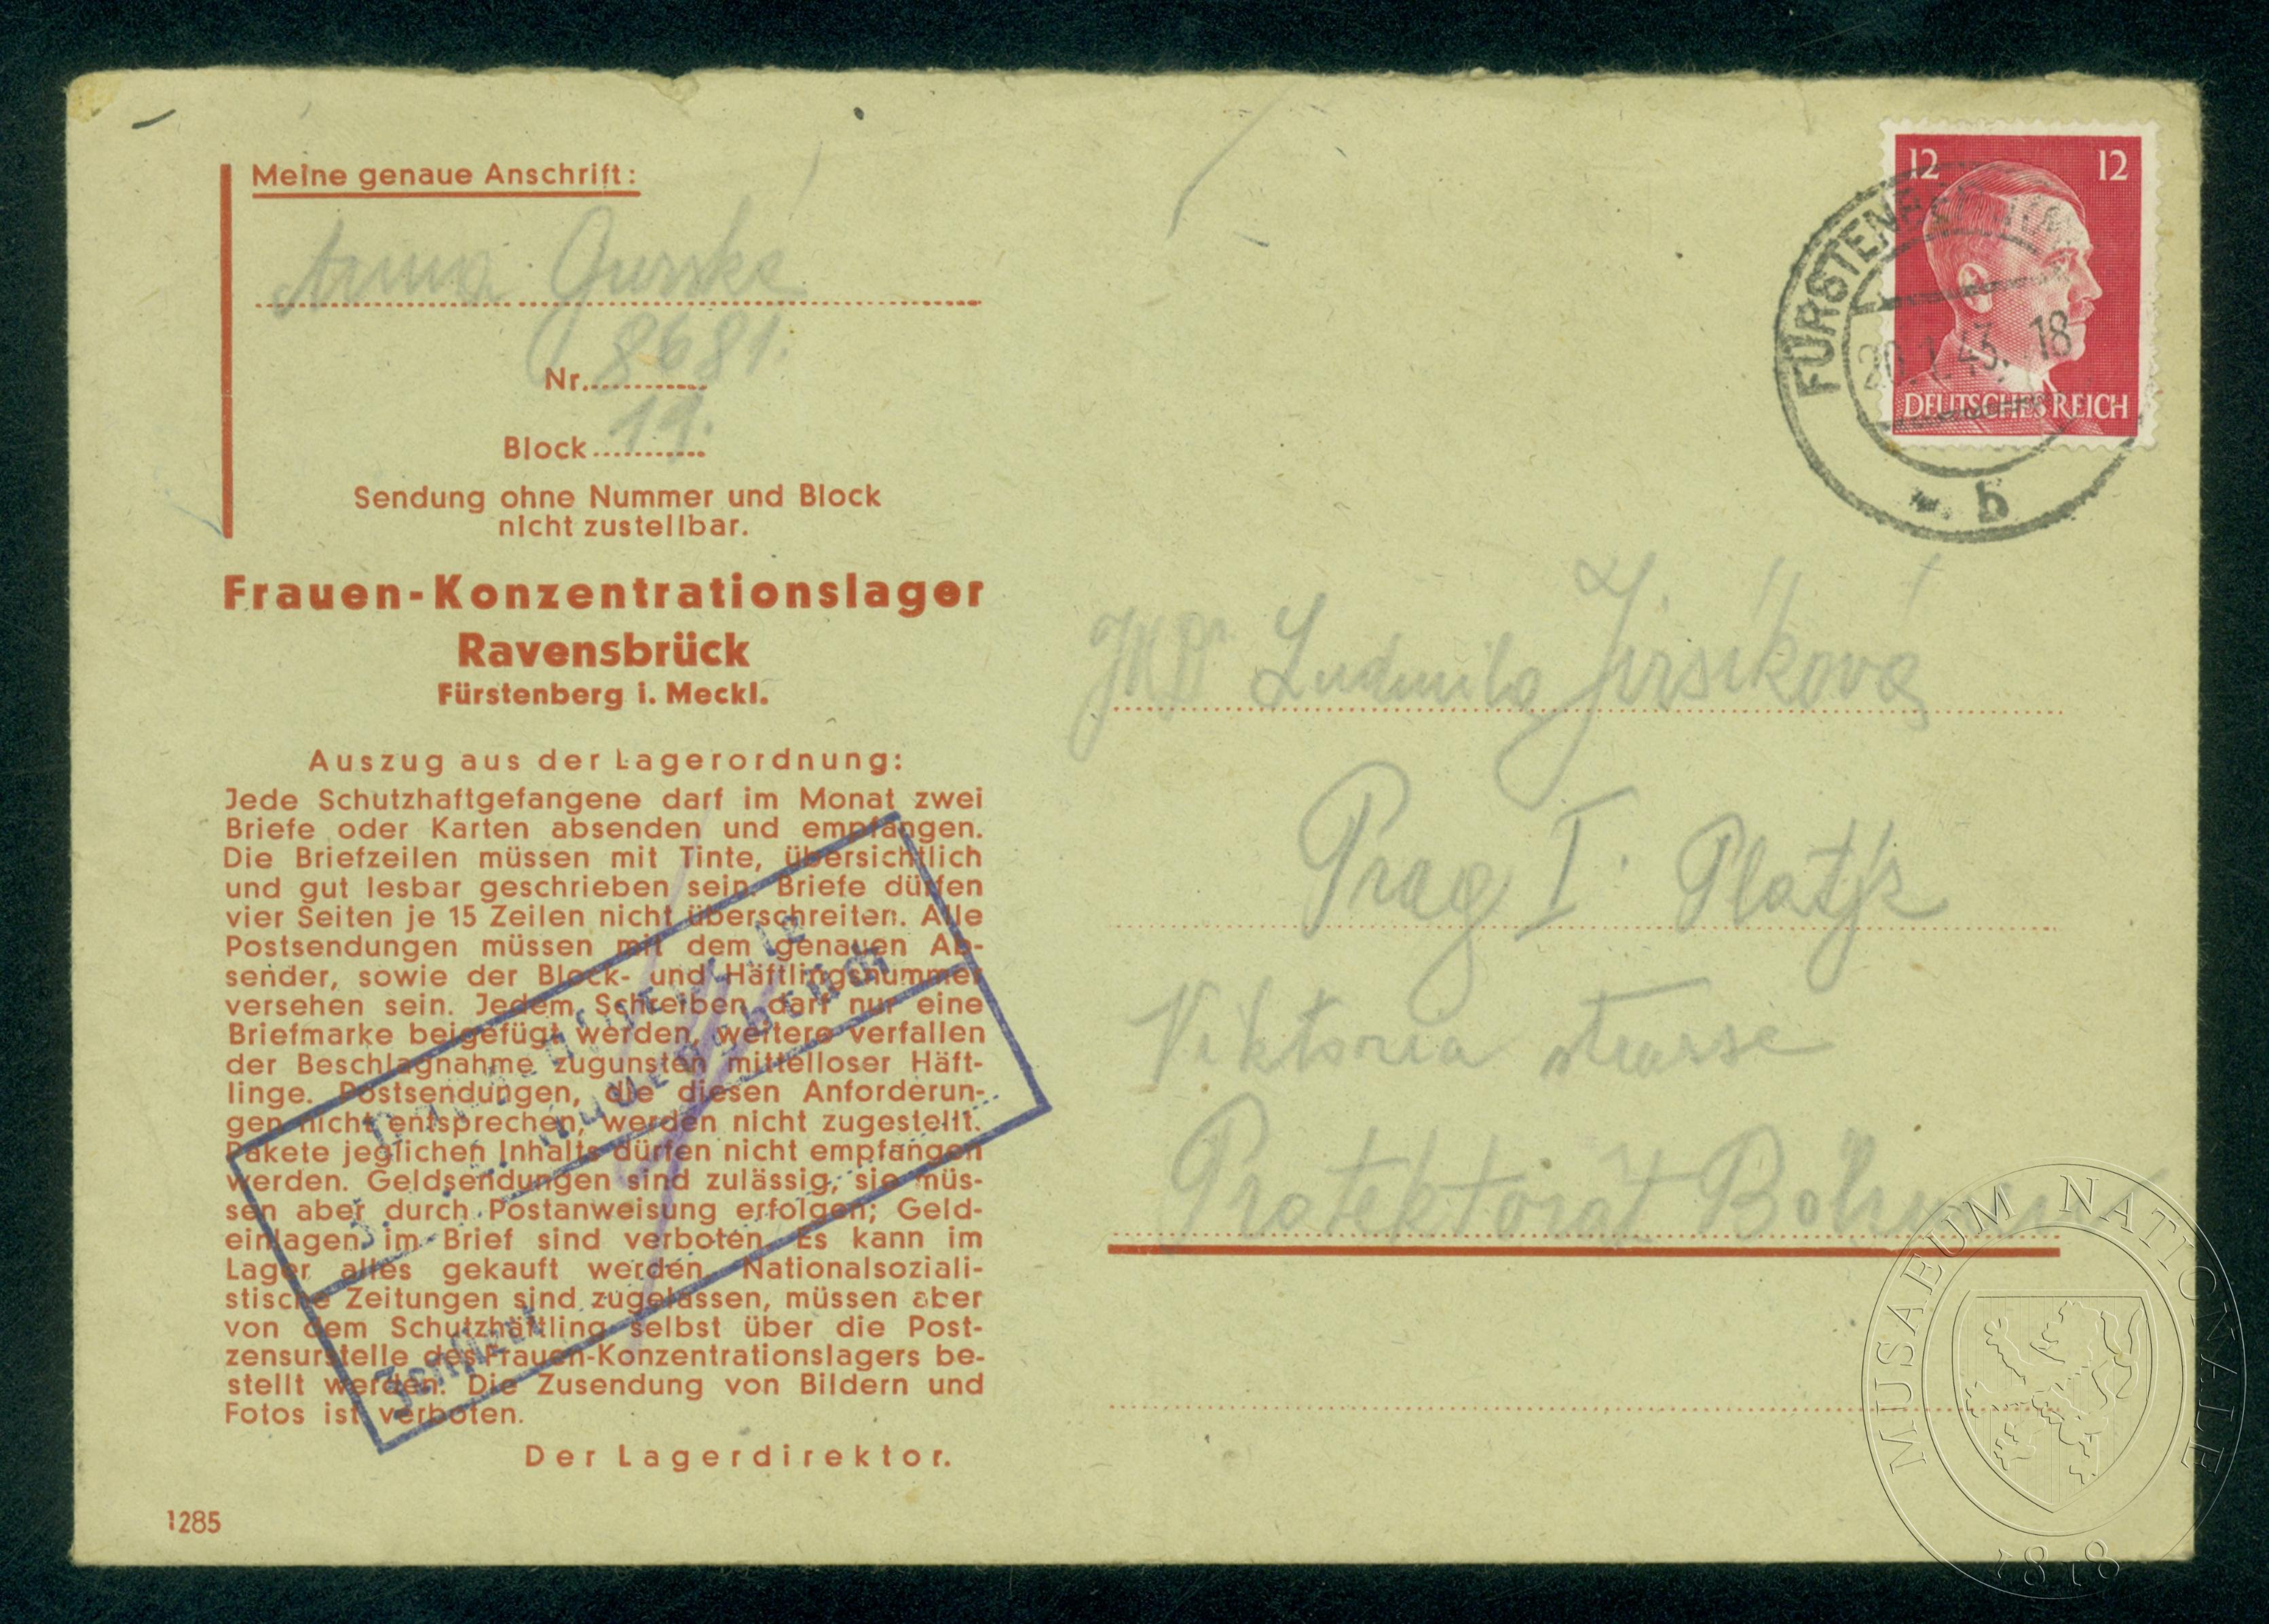 Meine genaue Anschrift:
Anna
Nr. 8681.
Block 19.
Sendung ohne Nummer und Block
nicht zustellbar.
Frauen-Konzentrationslager
Ravensbrück
Fürstenberg i. Meckl.
Auszug aus der Lagerordnung:
Jede Schutzhaftgefangene darf im Monat zwei
Briefe oder Karten absenden und empfangen.
Die Briefzeilen müssen mit Tinte, übersichtlich
und gut lesbar geschrieben sein. Briefe dürfen
vier Seiten je 15 Zeilen nicht überschreiten. Alle
Postsendungen müssen mit dem genauen Ab-
sender, sowie der Block- und Häftlingsnummer
versehen sein. Jedem Schreiben darf nur eine
Briefmarke beigefügt werden, weitere verfallen
der Beschlagnahme zugunsten mittelloser Häft-
linge. Postsendungen, die diesen Anforderun-
gen nicht entsprechen, werden nicht zugestellt.
Pakete jeglichen Inhalts dürfen nicht empfangen
werden. Geldsendungen sind zulässig, sie müs-
sen aber durch Postanweisung erfolgen; Geld-
einlagen im Brief sind verboten. Es kann im
Lager alles gekauft werden. Nationalsoziali-
stische Zeitungen sind zugelassen, müssen aber
von dem Schutzhäftling selbst über die Post-
zensurstelle des Frauen-Konzentrationslagers be-
stellt werden. Die Zusendung von Bildern und
Fotos ist verboten.
Der Lagerdirektor.
1285
Postzensurstelle
F.K.L. Ravensbrück
Zensiert
12 12
DEUTSCHES REICH
FÜRSTENBERG
20.1.43. 18
b
Ludmila Jirsíková
Prag I. Platýz
Viktoria strasse
Protektorat Böhmen
MUSAEUM NATIONALE
1818